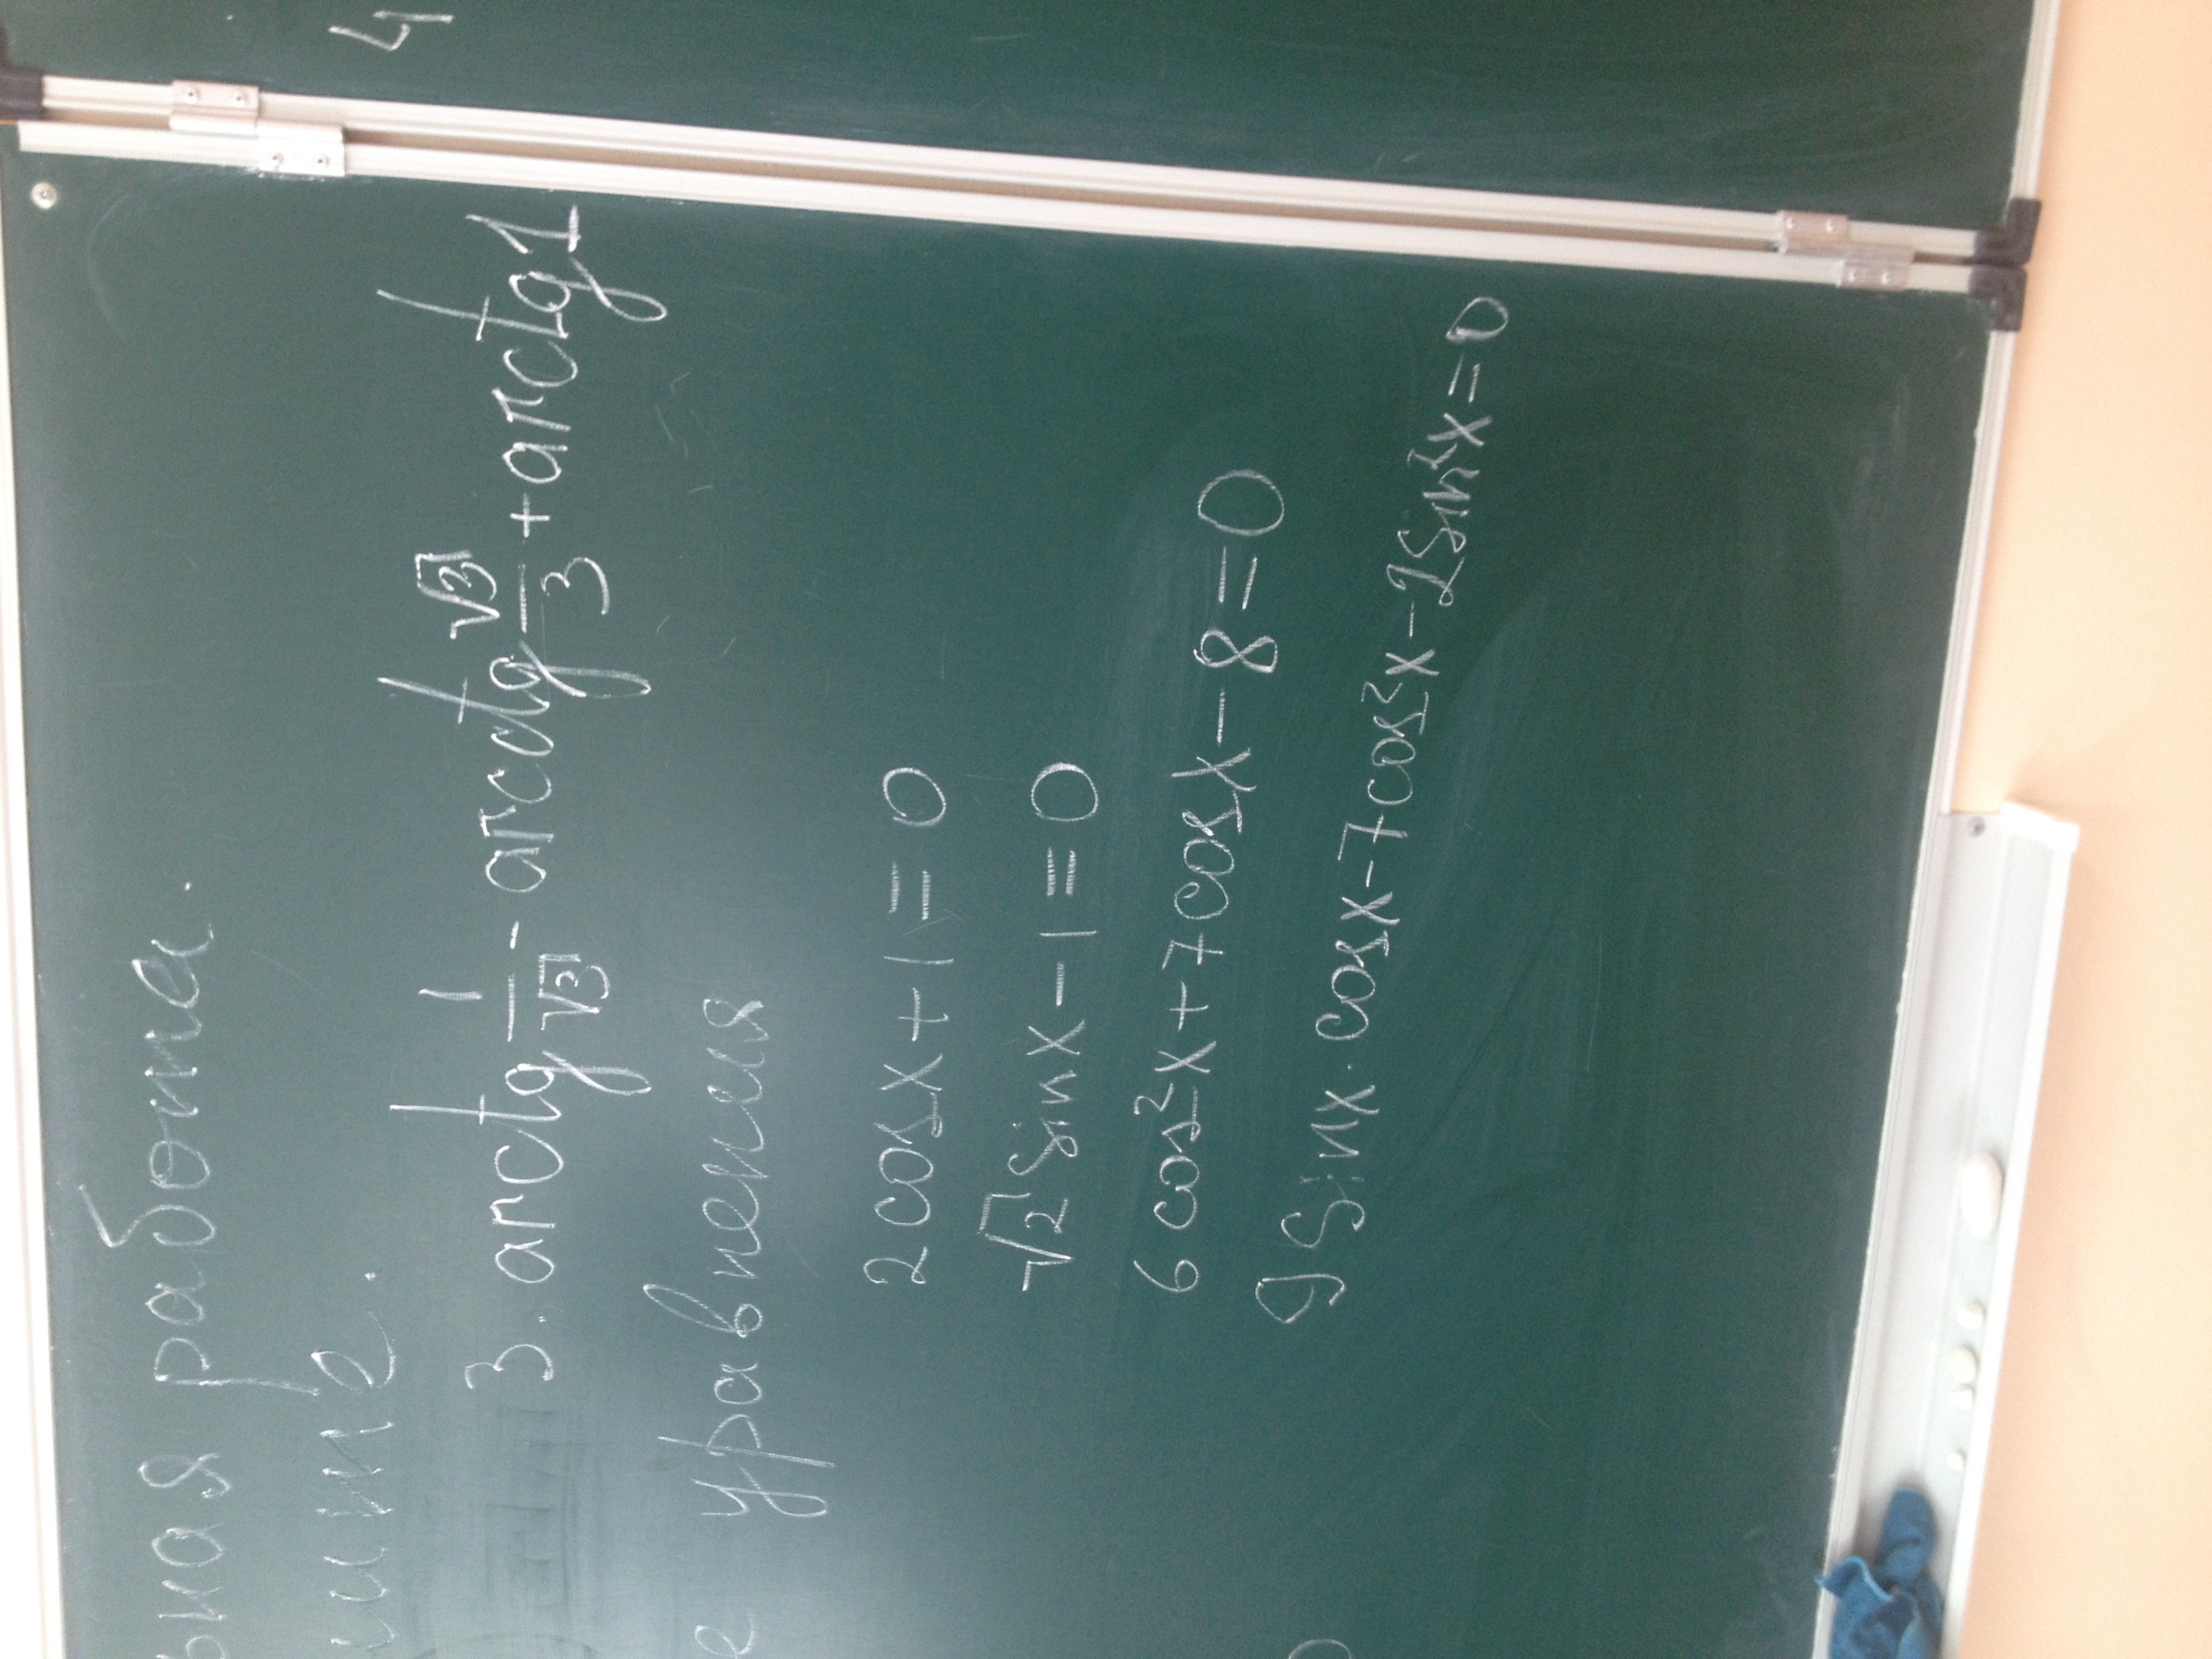 ьная работа.
ите.
3. arctg 1/√3 - arcctg √3/3 + arcctg 1
е уравнения
2 cos x + 1 = 0
√2 sin x - 1 = 0
6 cos² x + 7 cos x - 8 = 0
9 sin x · cos x - 7 cos² x - 2 sin² x = 0
4